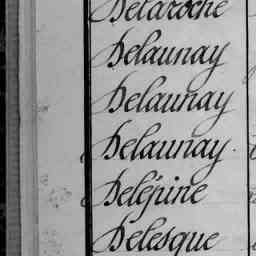 Delaroche
Delaunay
Delaunay
Delaunay.
Delépine
Delesque